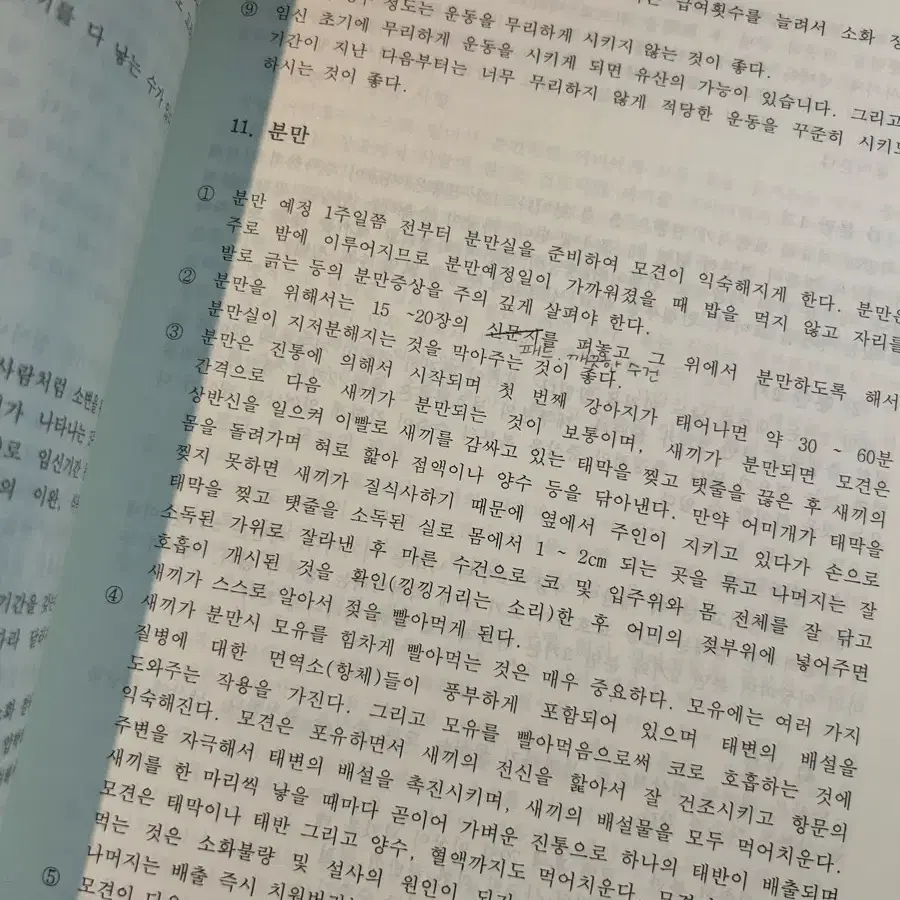 기를 다 낳는 수가 있
사람처럼 소변을
가 나타나는 것
으로 임신기간
의 이완,
기간을
급여횟수를 늘려서 소화
정도는 운동을 무리하게 시키지 않는 것이 좋다.
⑨ 임신 초기에 무리하게 운동을 시키게 되면 유산의 가능이 있습니다. 그리고
기간이 지난 다음부터는 너무 무리하지 않게 적당한 운동을 꾸준히 시키도
하시는 것이 좋다.
11. 분만
① 분만 예정 1주일쯤 전부터 분만실을 준비하여 모견이 익숙해지게 한다. 분만은
주로 밤에 이루어지므로 분만예정일이 가까워졌을 때 밥을 먹지 않고 자리를
발로 긁는 등의 분만증상을 주의 깊게 살펴야 한다.
② 분만을 위해서는 15 ~20장의 신문지를 펴놓고 그 위에서 분만하도록 해서
패드, 깨끗한 수건
분만실이 지저분해지는 것을 막아주는 것이 좋다.
③ 분만은 진통에 의해서 시작되며 첫 번째 강아지가 태어나면 약 30 ~ 60분
간격으로 다음 새끼가 분만되는 것이 보통이며, 새끼가 분만되면 모견은
상반신을 일으켜 이빨로 새끼를 감싸고 있는 태막을 찢고 탯줄을 끊은 후 새끼의
몸을 돌려가며 혀로 핥아 점액이나 양수 등을 닦아낸다. 만약 어미개가 태막을
찢지 못하면 새끼가 질식사하기 때문에 옆에서 주인이 지키고 있다가 손으로
태막을 찢고 탯줄을 소독된 실로 몸에서 1 ~ 2cm 되는 곳을 묶고 나머지는 잘
소독된 가위로 잘라낸 후 마른 수건으로 코 및 입주위와 몸 전체를 잘 닦고
호흡이 개시된 것을 확인(낑낑거리는 소리)한 후 어미의 젖부위에 넣어주면
새끼가 스스로 알아서 젖을 빨아먹게 된다.
④ 새끼가 분만시 모유를 힘차게 빨아먹는 것은 매우 중요하다. 모유에는 여러 가지
질병에 대한 면역소(항체)들이 풍부하게 포함되어 있으며 태변의 배설을
도와주는 작용을 가진다. 그리고 모유를 빨아먹음으로써 코로 호흡하는 것에
익숙해진다. 모견은 포유하면서 새끼의 전신을 핥아서 잘 건조시키고 항문의
주변을 자극해서 태변의 배설을 촉진시키며, 새끼의 배설물을 모두 먹어치운다.
새끼를 한 마리씩 낳을 때마다 곧이어 가벼운 진통으로 하나의 태반이 배출되며
모견은 태막이나 태반 그리고 양수, 혈액까지도 먹어치운다.
먹는 것은 소화불량 및 설사의 원인이
⑤ 나머지는 배출 즉시
모견이